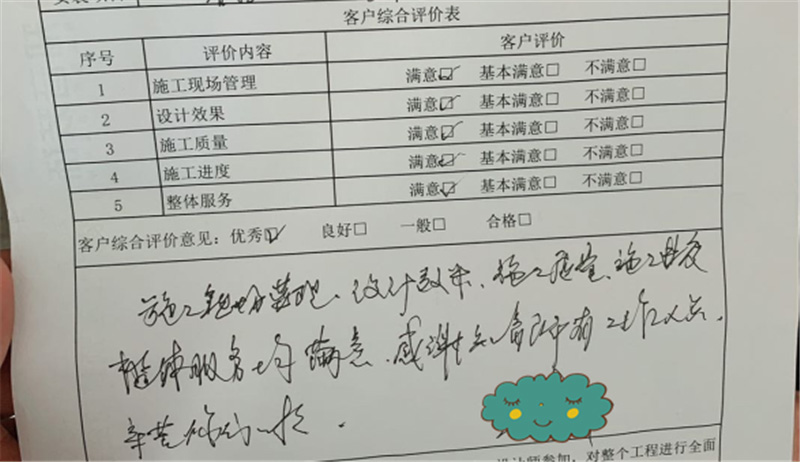 客户综合评价表
序号 评价内容 客户评价
1 施工现场管理 满意☑ 基本满意□ 不满意□
2 设计效果 满意☑ 基本满意□ 不满意□
3 施工质量 满意☑ 基本满意□ 不满意□
4 施工进度 满意☑ 基本满意□ 不满意□
5 整体服务 满意☑ 基本满意□ 不满意□
客户综合评价意见：优秀☑ 良好□ 一般□ 合格□
施工现场管理、设计效果、施工质量、施工进度
整体服务均满意、感谢 所有工作人员.
辛苦你们
参加，对整个工程进行全面